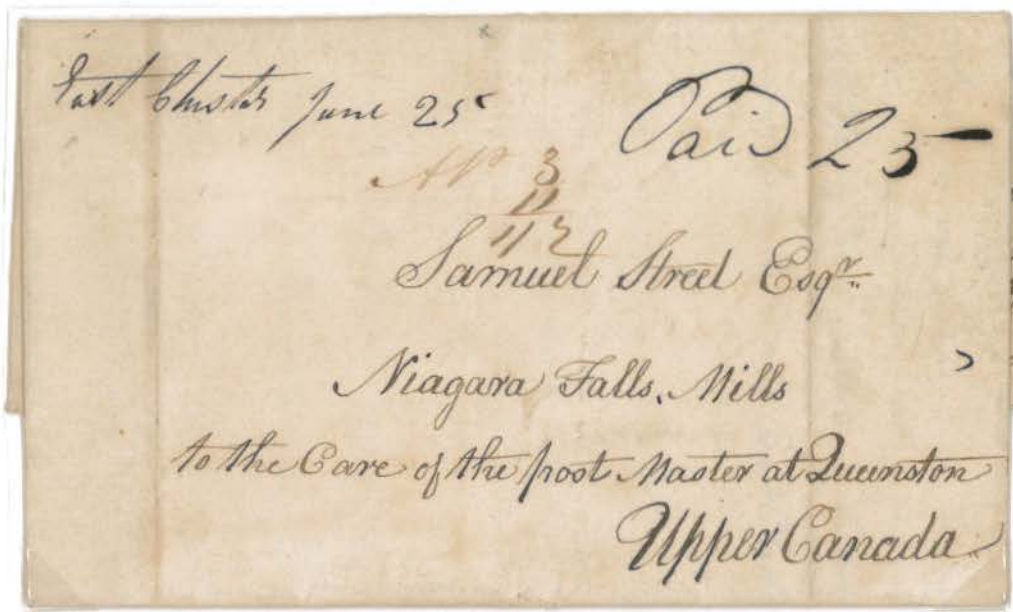 East Chester June 25
Paid 25
3
11
Samuel Street Esqr
Niagara Falls, Mills
to the Care of the post Master at Queenston
Upper Canada